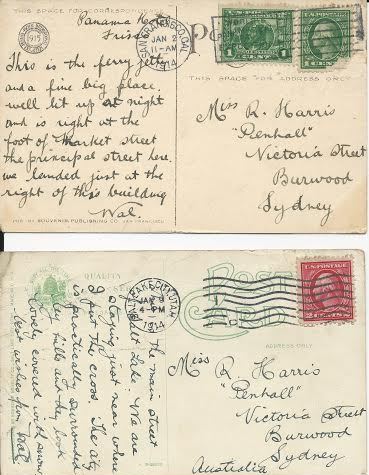 THIS SPACE FOR CORRESPONDENCE
Panama
Frisco
1915
This is the ferry jetty
and a fine big place.
well lit up at night
and is right at the
foot of Market street
the principal street here.
we landed just at the
right of this building
Wal.
PUB. BY SOUVENIR PUBLISHING CO. SAN FRANCISCO
SAN FRANCISCO, CAL.
JAN 2
11-AM
1914
1 CENT 1
U.S. POSTAGE
1 CENT 1
THIS SPACE FOR ADDRESS ONLY
Miss R. Harris
"Penhall"
Victoria Street
Burwood
Sydney
QUALITY
the main street
Salt Lake. We are
staying just near where
I put the cross. The city
is practically surrounded
by hills and they look
lovely covered with snow.
best wishes from Wal
SALT LAKE CITY, UTAH
JAN
4-PM
1914
Post
Card
U.S. POSTAGE
2 CENTS 2
ADDRESS ONLY
Miss R. Harris
"Penhall"
Victoria Street
Burwood
Sydney
Australia